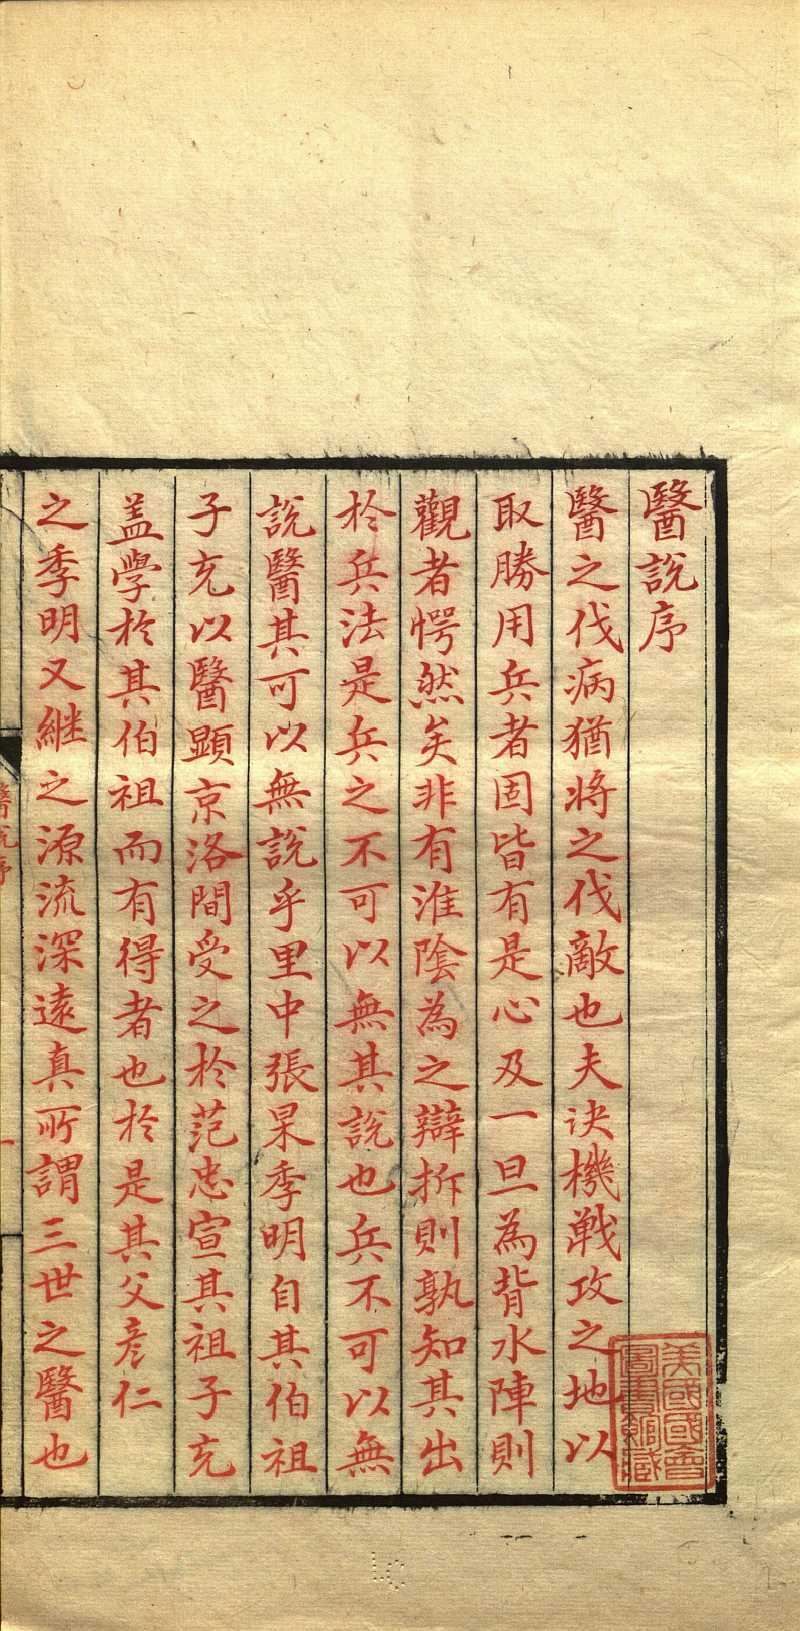 醫說序
醫之伐病猶將之伐敵也夫决機戰攻之地以
取勝用兵者固皆有是心及一旦為背水陣則
觀者愕然矣非有淮陰為之辯拆則孰知其出
於兵法是兵之不可以無其說也兵不可以無
說醫其可以無說乎里中張杲季明自其伯祖
子充以醫顯京洛間受之於范忠宣其祖子充
盖學於其伯祖而有得者也於是其父彥仁
之季明又継之源流深遠真所謂三世之醫也
醫說序
一
美國國會
圖書館藏